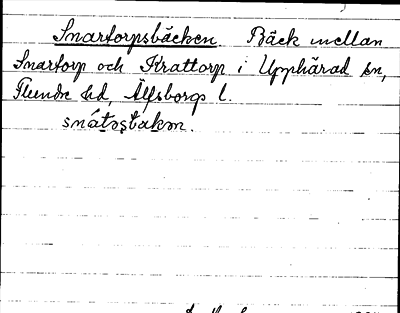 Snartorpsbäcken. Bäck mellan
Snartorp och Krattorp i Upphärad sn,
Flundre hd, Älfsborgs l.
snátɔṣtakɔn.